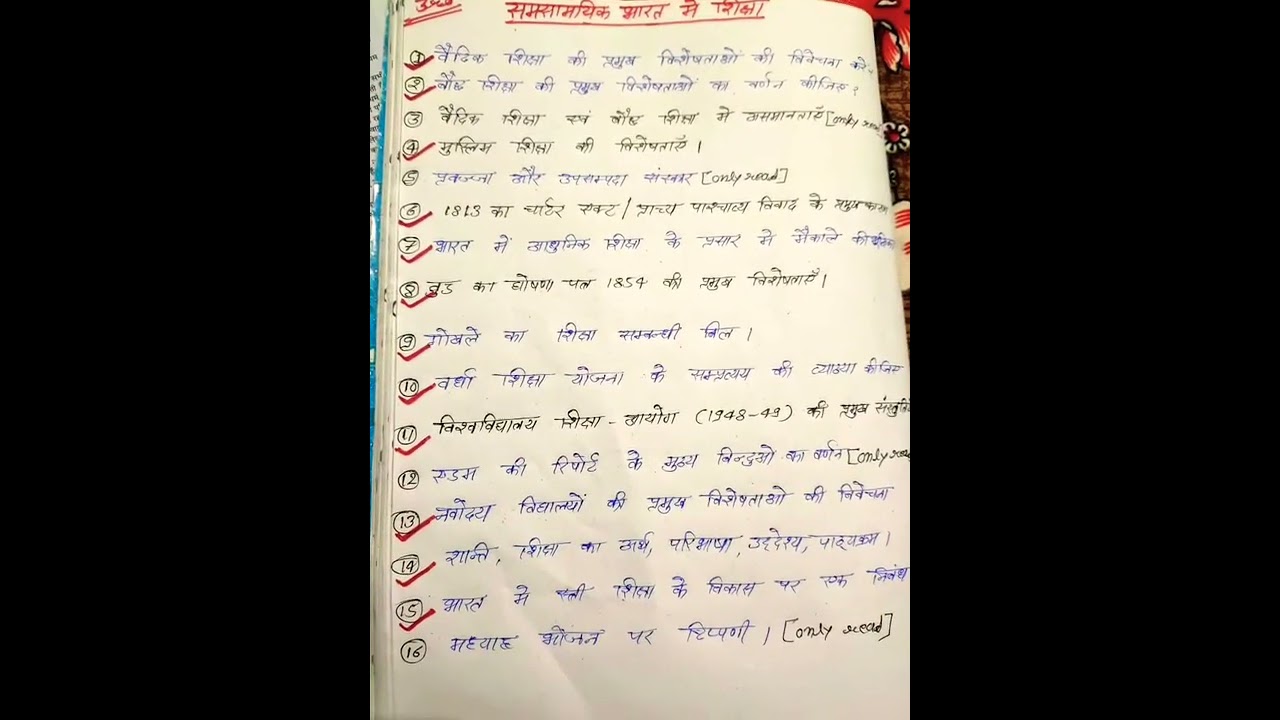 समसामयिक भारत में शिक्षा
① वैदिक शिक्षा की प्रमुख विशेषताओं की विवेचना करे
② बौद्ध शिक्षा की प्रमुख विशेषताओं का वर्णन कीजिए ?
③ वैदिक शिक्षा एवं बौद्ध शिक्षा में असमानताएँ [only read
④ मुस्लिम शिक्षा की विशेषताएँ ।
⑤ प्रवज्जा और उपसम्पदा संस्कार [only read]
⑥ 1813 का चार्टर एक्ट / प्राच्य पाश्चात्य विवाद के प्रमुख कारण
⑦ भारत में आधुनिक शिक्षा के प्रसार में मैकाले की
⑧ वुड का घोषणा पत्र 1854 की प्रमुख विशेषताएँ ।
⑨ गोखले का शिक्षा सम्बन्धी बिल ।
⑩ वर्धा शिक्षा योजना के सम्प्रत्यय की व्याख्या कीजिए
⑪ विश्वविद्यालय शिक्षा - आयोग (1948-49) की प्रमुख
⑫ एडम की रिपोर्ट के मुख्य बिन्दुओ का वर्णन [only read
⑬ नवोदय विद्यालयों की प्रमुख विशेषताओ की विवेचना
⑭ शान्ति, शिक्षा का अर्थ, परिभाषा, उद्देश्य, पाठ्यक्रम ।
⑮ भारत मे स्त्री शिक्षा के विकास पर एक निबंध
⑯ मध्याह्न भोजन पर टिप्पणी । [only read]